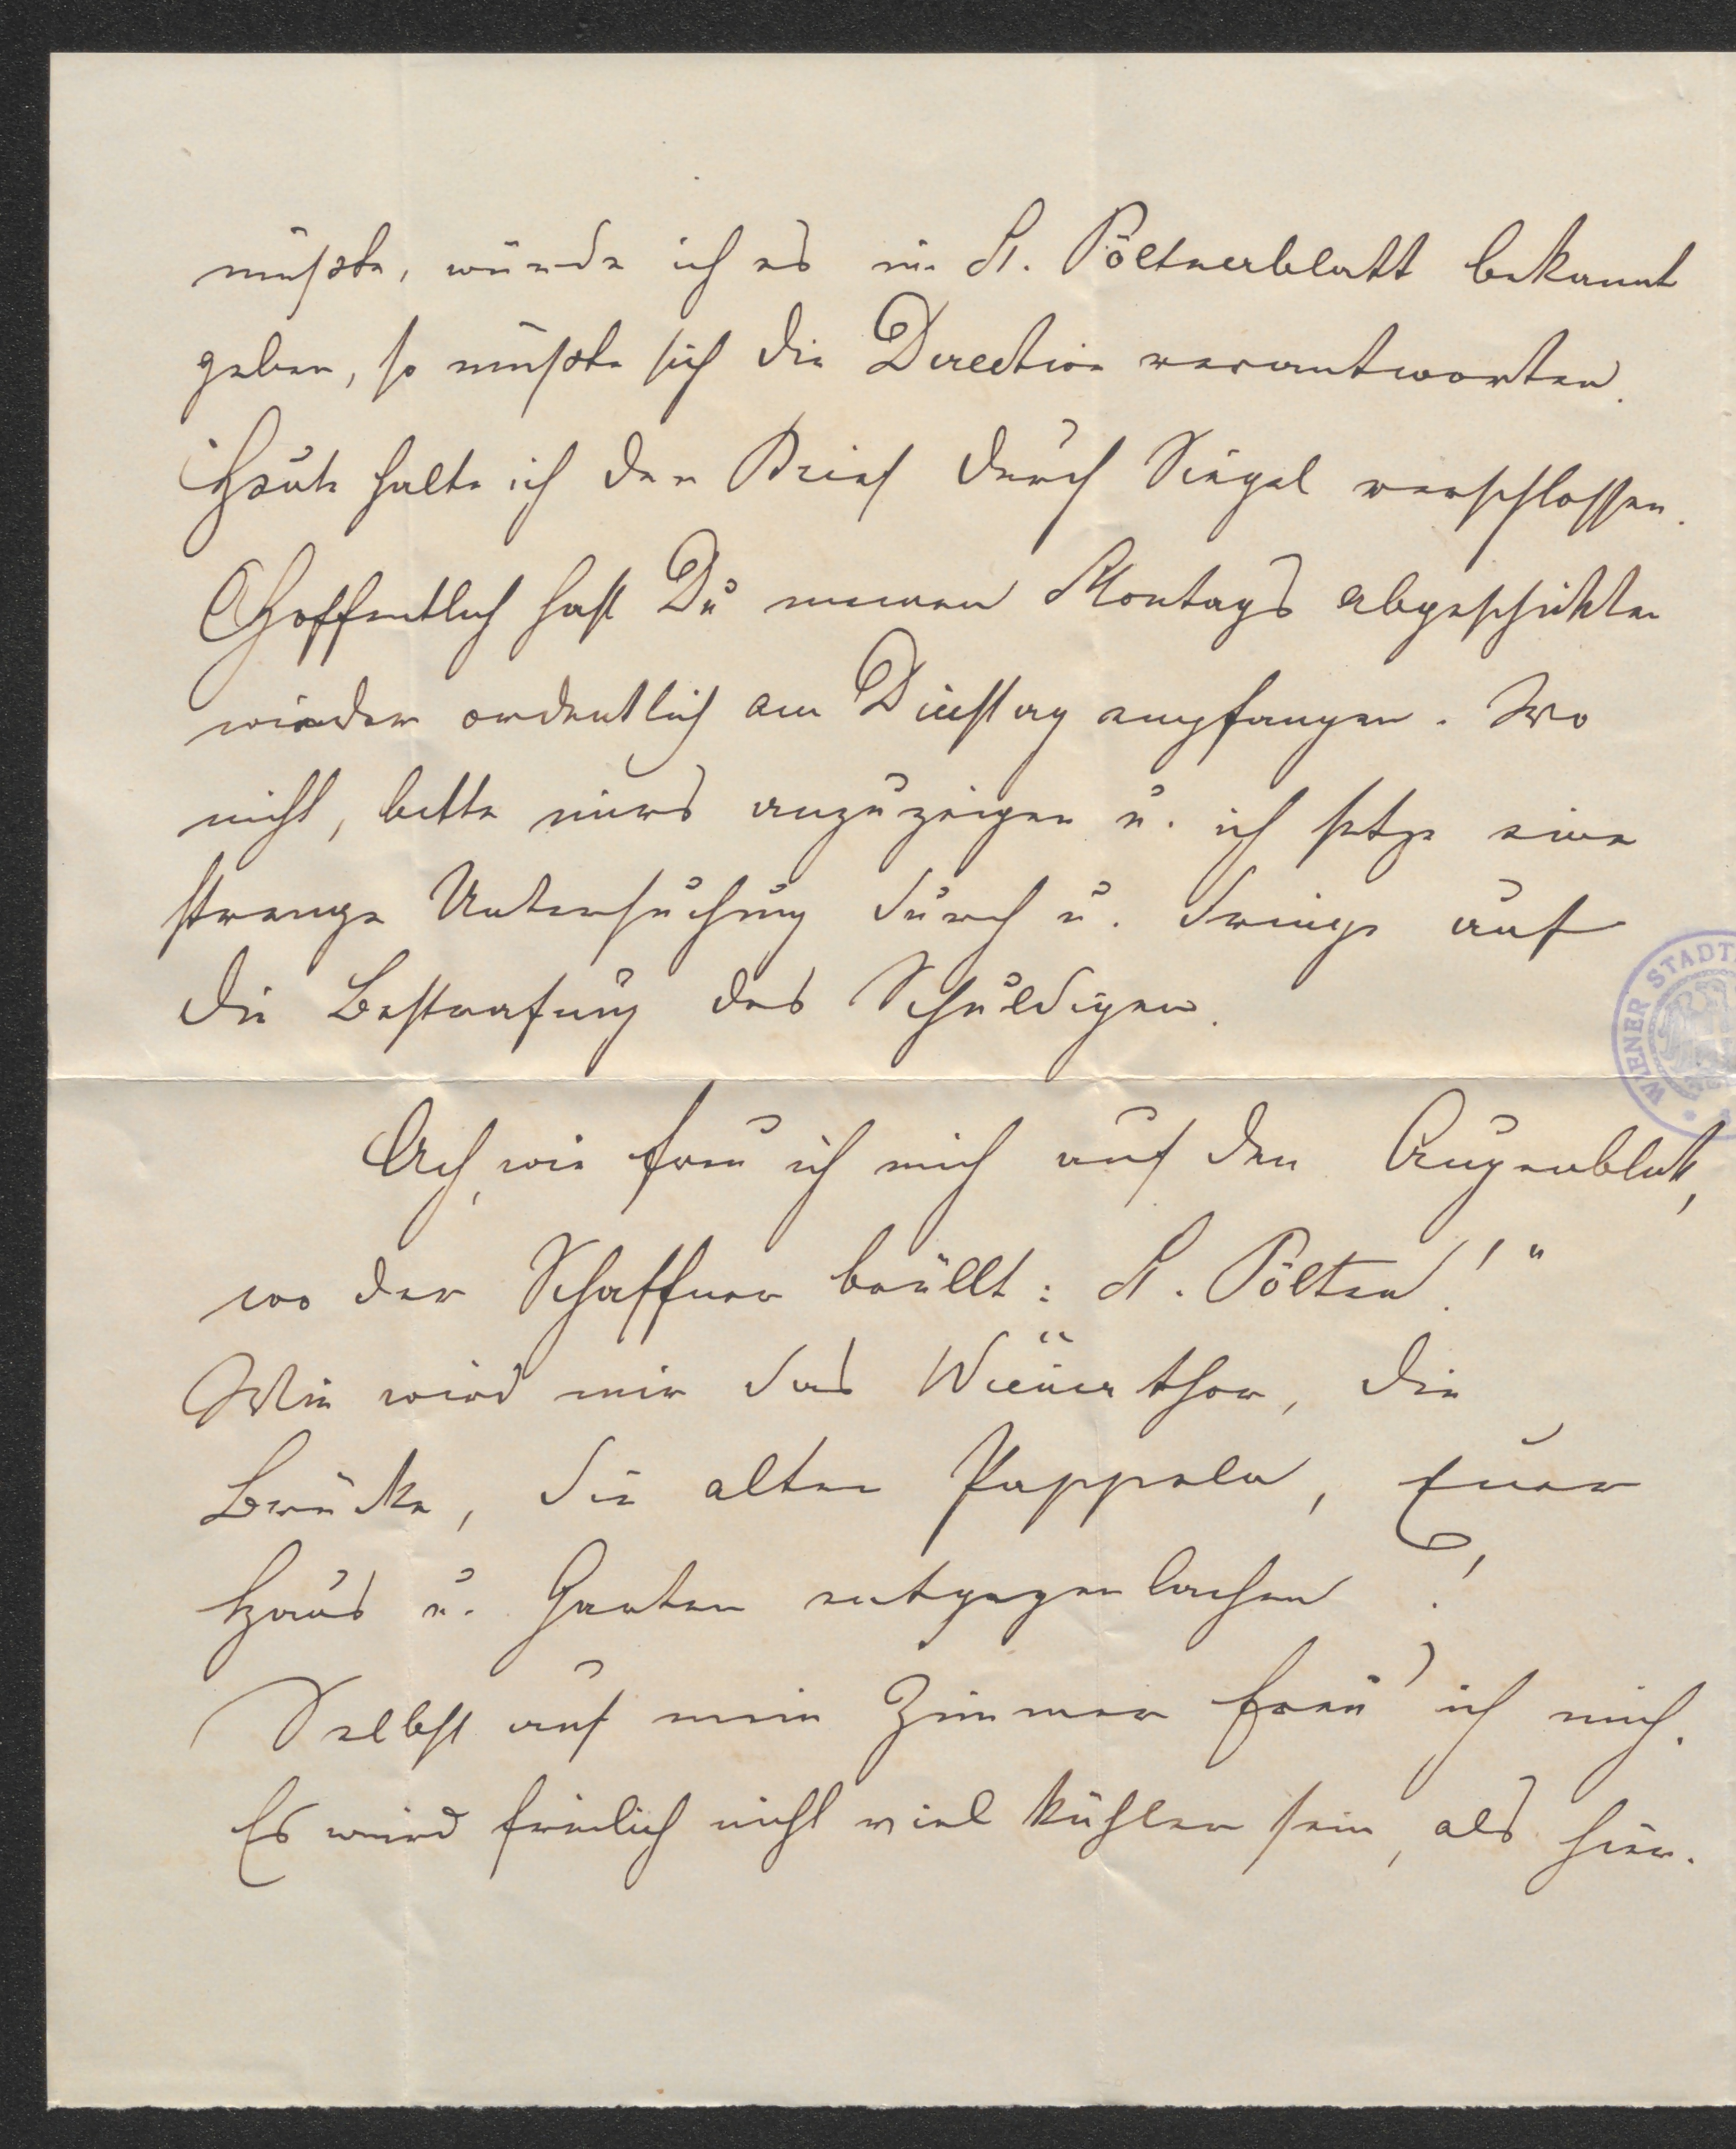 müßte, würde ich es im St. Pöltnerblatt bekannt
geben, so müßte sich die Direction verantworten.
Heute halte ich den Brief durch Siegel verschlossen.
Hoffentlich hast Du meinen Montags abgeschickten
wieder ordentlich am Dienstag empfangen. Wo
nicht, bitte mirs anzuzeigen u. ich setze eine
strenge Untersuchung durch u. dringe auf
die Bestrafung des Schuldigen.
Ach, wie freu ich mich auf den Augenblick,
wo der Schaffner brüllt: St. Pölten!“
Wie wird mir das Wienerthor, die
Brücke, die alten Pappeln, Euer
Haus u. Garten entgegenlachen!
Selbst auf mein Zimmer freu' ich mich.
Es wird freilich nicht viel kühler sein, als hier.
WIENER STADT